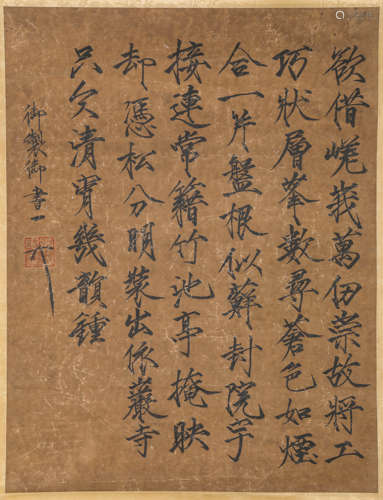 欲借嵯峩萬仞崇故將工
巧狀層峯數尋蒼色如煙
合一片盤根似蘚封院宇
接連常籍竹池亭掩映
却憑松分明裝出依巖寺
只欠清宵幾韻鍾
御製御書